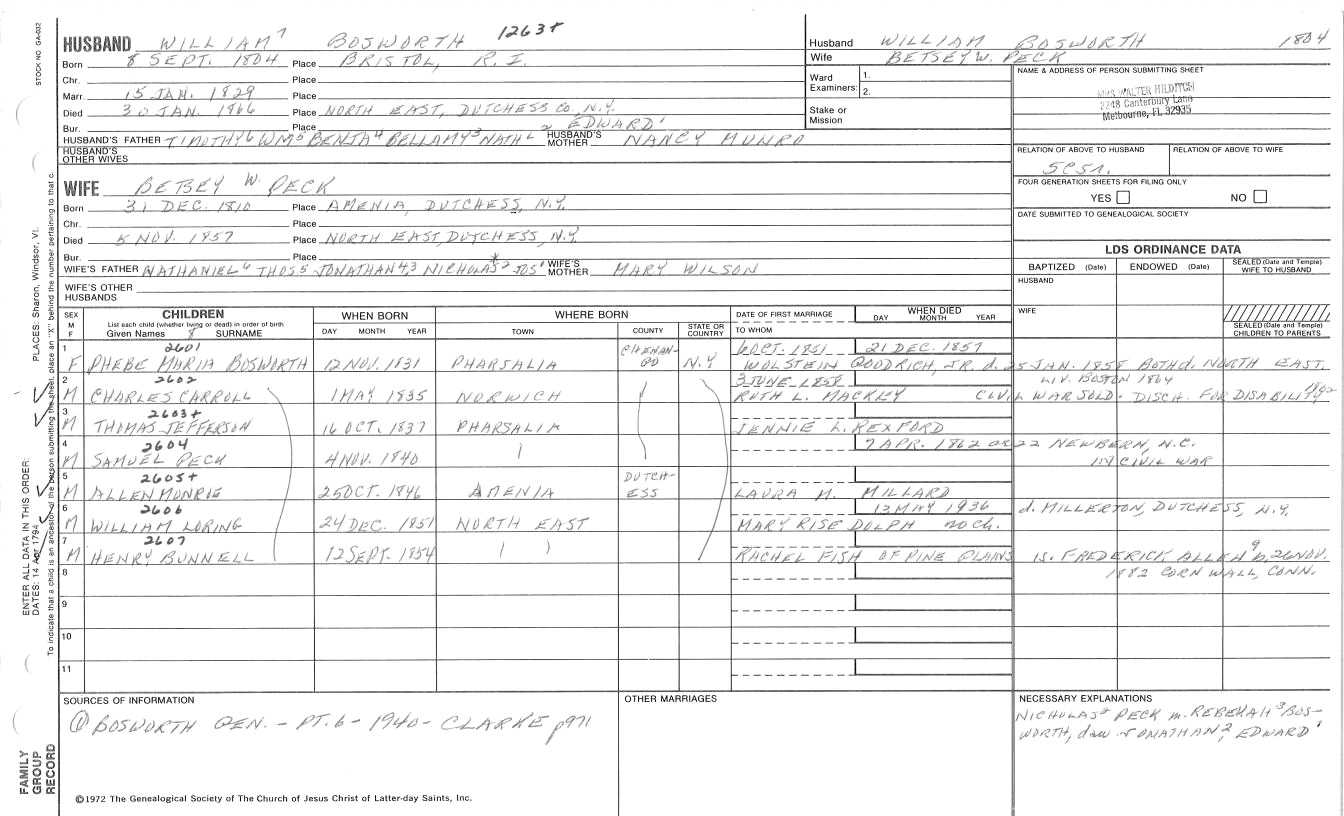 STOCK NO. GA-032
HUSBAND WILLIAM7 BOSWORTH 1263+
Born 8 SEPT. 1804 Place BRISTOL, R.I.
Chr. Place
Marr. 15 JAN. 1829 Place
Died 30 JAN. 1866 Place NORTH EAST, DUTCHESS CO, N.Y.
Bur. Place
HUSBAND'S FATHER TIMOTHY6 WM5 BENJA4 BELLAMY3 NATHL2 EDWARD1 HUSBAND'S MOTHER NANCY MUNRO
HUSBAND'S OTHER WIVES
WIFE BETSEY W. PECK
Born 31 DEC. 1810 Place AMENIA, DUTCHESS, N.Y.
Chr. Place
Died 5 NOV. 1857 Place NORTH EAST, DUTCHESS, N.Y.
Bur. Place
WIFE'S FATHER NATHANIEL6 THOS5 JONATHAN4,3 NICHOLAS2* JOS1 WIFE'S MOTHER MARY WILSON
WIFE'S OTHER HUSBANDS
Husband WILLIAM BOSWORTH 1804
Wife BETSEY W. PECK
Ward Examiners: 1. 2.
Stake or Mission
NAME & ADDRESS OF PERSON SUBMITTING SHEET
MRS WALTER HILDITCH
2248 Canterbury Lane
Melbourne, FL 32935
RELATION OF ABOVE TO HUSBAND RELATION OF ABOVE TO WIFE
5C5r.
FOUR GENERATION SHEETS FOR FILING ONLY
YES NO
DATE SUBMITTED TO GENEALOGICAL SOCIETY
LDS ORDINANCE DATA
BAPTIZED (Date) ENDOWED (Date) SEALED (Date and Temple) WIFE TO HUSBAND
HUSBAND
WIFE
SEALED (Date and Temple) CHILDREN TO PARENTS
SEX M F CHILDREN WHEN BORN WHERE BORN DATE OF FIRST MARRIAGE WHEN DIED
List each child (whether living or dead) in order of birth DAY MONTH YEAR
Given Names 8 SURNAME DAY MONTH YEAR TOWN COUNTY STATE OR COUNTRY TO WHOM
1 2601 CHENAN- 6 OCT. 1851 21 DEC. 1857
F PHEBE MARIA BOSWORTH 12 NOV. 1831 PHARSALIA GO N.Y WOLSTEIN GOODRICH, JR. d. 25 JAN. 1858 BOTH d. NORTH EAST.
2 2602 3 JUNE 1858 LIV. BOSTON 1864
M CHARLES CARROLL 1 MAY 1835 NORWICH RUTH L. MACKEY CIVIL WAR SOLD. DISCH. FOR DISABILITY 1862
3 2603+
M THOMAS JEFFERSON 16 OCT. 1837 PHARSALIA JENNIE L. REXFORD
4 2604 7 APR. 1862 OR 22 NEWBERN, N.C.
M SAMUEL PECK 4 NOV. 1840 IN CIVIL WAR
5 2605+ DUTCH-
M ALLEN MUNRIE 25 OCT. 1846 AMENIA ESS LAURA M. MILLARD
6 2606 12 MAY 1936 d. MILLERTON, DUTCHESS, N.Y.
M WILLIAM LORING 24 DEC. 1851 NORTH EAST MARY RISE DOLPH no ch.
7 2607
M HENRY BUNNELL 12 SEPT. 1854 RACHEL FISH OF PINE PLAINS IS. FREDERICK ALLEN9 b. 26 NOV.
8 1882 CORNWALL, CONN.
9
10
11
SOURCES OF INFORMATION
① BOSWORTH GEN. - PT. 6 - 1940 - CLARKE p971
OTHER MARRIAGES
NECESSARY EXPLANATIONS
NICHOLAS2 PECK m. REBEKAH3 BOS-
WORTH, dau JONATHAN2, EDWARD1
©1972 The Genealogical Society of The Church of Jesus Christ of Latter-day Saints, Inc.
FAMILY GROUP RECORD
ENTER ALL DATA IN THIS ORDER:
DATES: 14 Apr 1794
PLACES: Sharon, Windsor, Vt.
To indicate that a child is an ancestor of the person submitting the sheet, place an "X" behind the number pertaining to that c